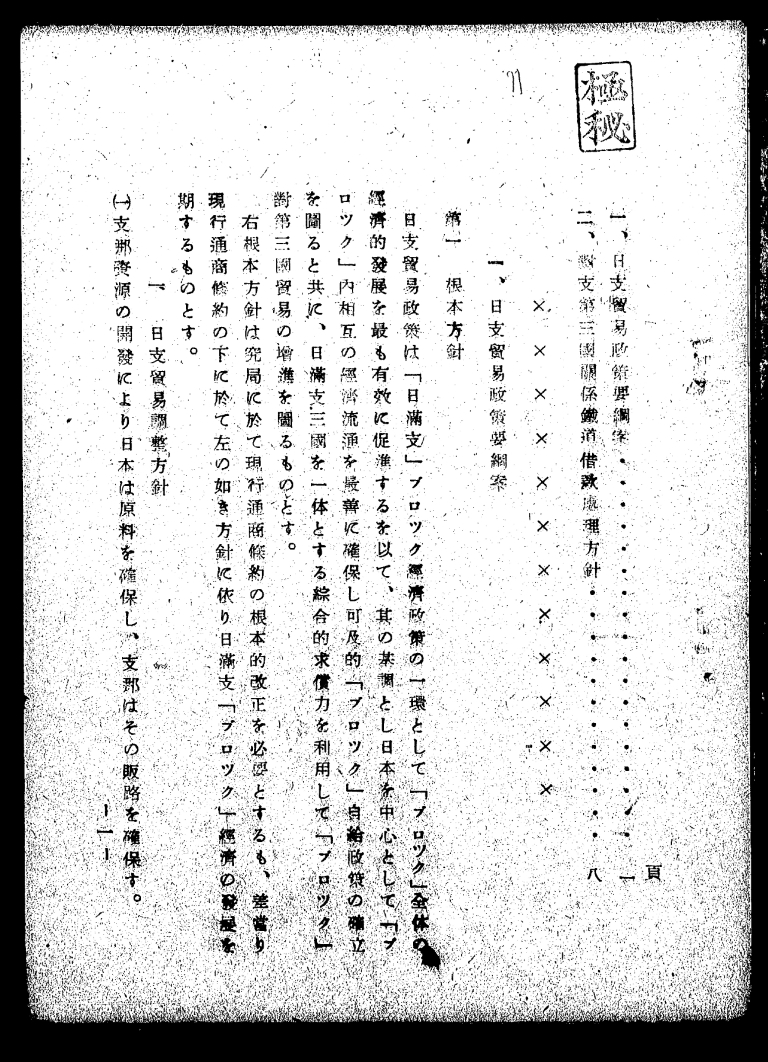 極秘
頁
一、日支貿易政策要綱案・・・・・・・・・・・・・・・・・一
二、對支第三國關係鐵道借款處理方針・・・・・・・・・・・・八
×××××××××××× 
一、日支貿易政策要綱案
第一 根本方針
日支貿易政策は「日滿支」ブロツク經濟政策の一環として「ブロツク」全体の
經濟的發展を最も有效に促進するを以て、其の基調とし日本を中心として「ブ
ロツク」内相互の經濟流通を最善に確保し可及的「ブロツク」自給政策の確立
を圖ると共に、日滿支三國を一体とする綜合的求償力を利用して「ブロツク」
對第三國貿易の増進を圖るものとす。
右根本方針は究局に於て現行通商條約の根本的改正を必要とするも、差當り
現行通商條約の下に於て左の如き方針に依り日滿支「ブロツク」經濟の發展を
期するものとす。
一 日支貿易調整方針
(一)支那資源の開發により日本は原料を確保し、支那はその販路を確保す。
―一―